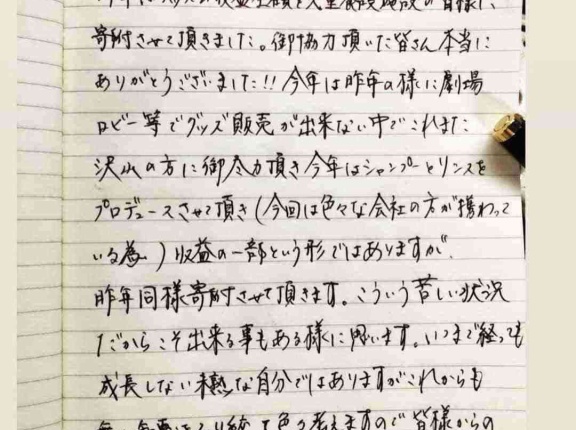 全額を児童養護施設の皆様に
寄附させて頂きました。御協力頂いた皆さん本当に
ありがとうございました!!今年は昨年の様に劇場
ロビー等でグッズ販売が出来ない中でこれまた
沢山の方に御尽力頂き今年はシャンプーとリンスを
プロデュースさせて頂き(今回は色々な会社の方が携わって
いる為)収益の一部という形ではありますが、
昨年同様寄附させて頂きます。こういう苦しい状況
だからこそ出来る事もある様に思います。いつまで経っても
成長しない未熟な自分ではありますがこれからも
色々考えますので皆様からの